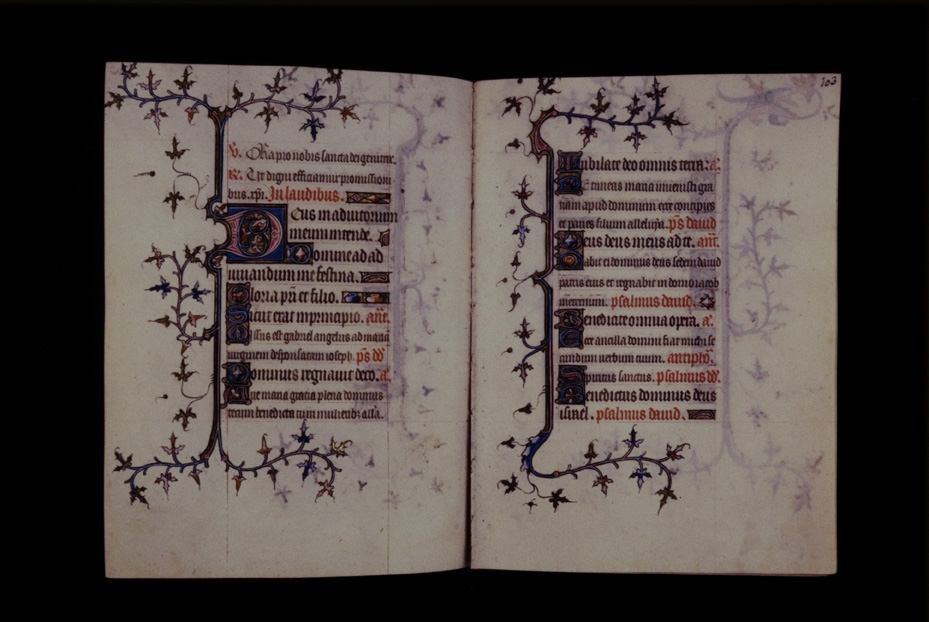 V. Ora pro nobis sancta dei genitrix.
R. Ut digni efficiamur promissioni
bus. xpi. In laudibus.
Deus in adiutorium
meum intende.
Domine ad ad
iuuandum me festina.
Gloria pri et filio.
Sicut erat in principio. ant.
Missus est gabriel angelus ad maria
uirginem desponsatam ioseph. ps dd
Dominus regnauit deco. a.
Aue maria gracia plena dominus
tecum benedicta tu in mulieribz alla.
103
Iubilate deo omnis terra: a.
Ne timeas maria inuenisti gra
tiam apud dominum ecce concipies
et paries filium alleluya. ps dauid
Deus deus meus ad te. ant.
Dabit ei dominus deus sedem dauid
patris eius et regnabit in domo iacob
in eternum. psalmus dauid.
Benedicite omnia opera. a.
Ecce ancilla domini fiat michi se
cundum uerbum tuum. antiph.
Spiritus sanctus. psalmus dd.
Benedictus dominus deus
israel. psalmus dauid.